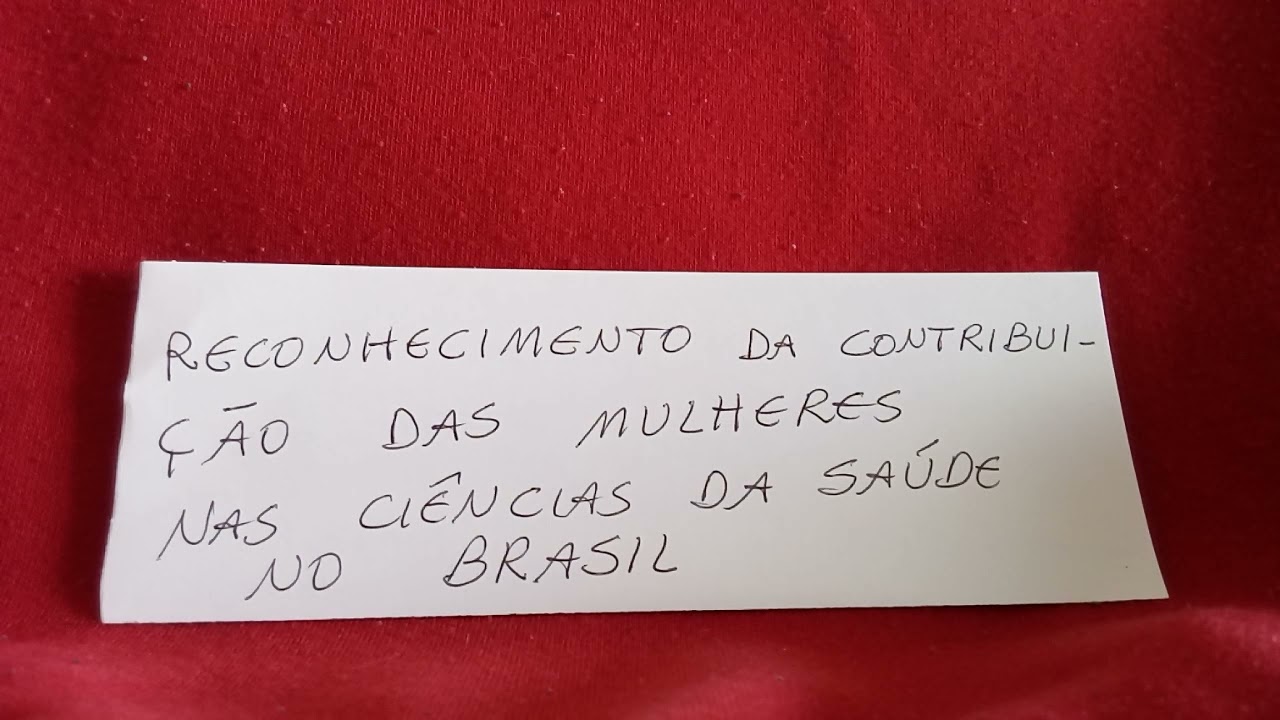 RECONHECIMENTO DA CONTRIBUI-
ÇÃO DAS MULHERES
NAS CIÊNCIAS DA SAÚDE
NO BRASIL